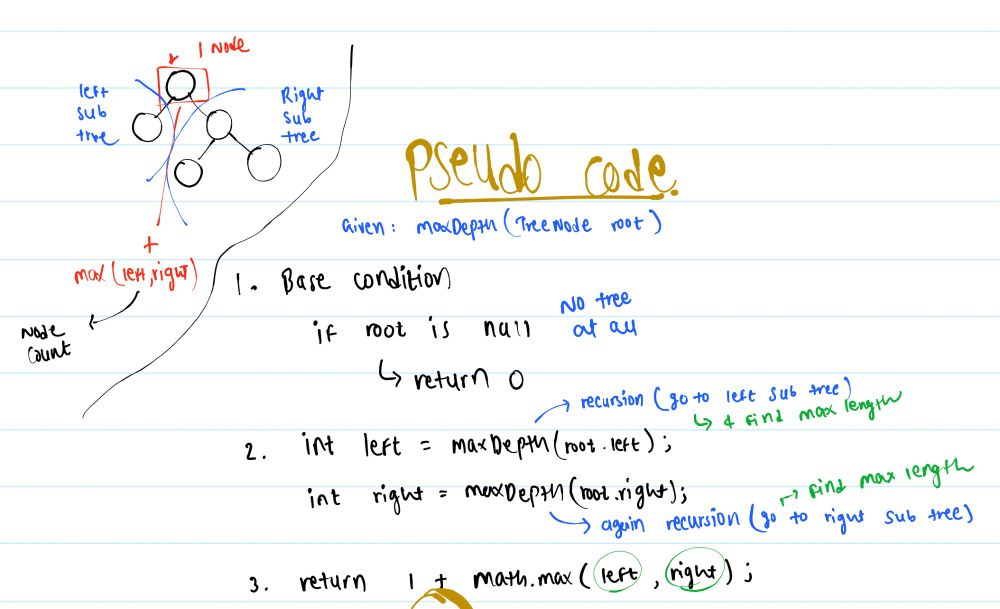 1 Node
left
sub
tree
Right
sub
tree
+
max (left,right)
Node
count
Pseudo code.
Given: maxDepth (TreeNode root)
1. Base condition
if root is null
No tree
at all
↳ return 0
→ recursion (go to left sub tree)
↳ & find max length
2. int left = maxDepth(root.left);
int right = maxDepth(root.right);
→ find max length
→ again recursion (go to right sub tree)
3. return 1 + math.max (left, right);